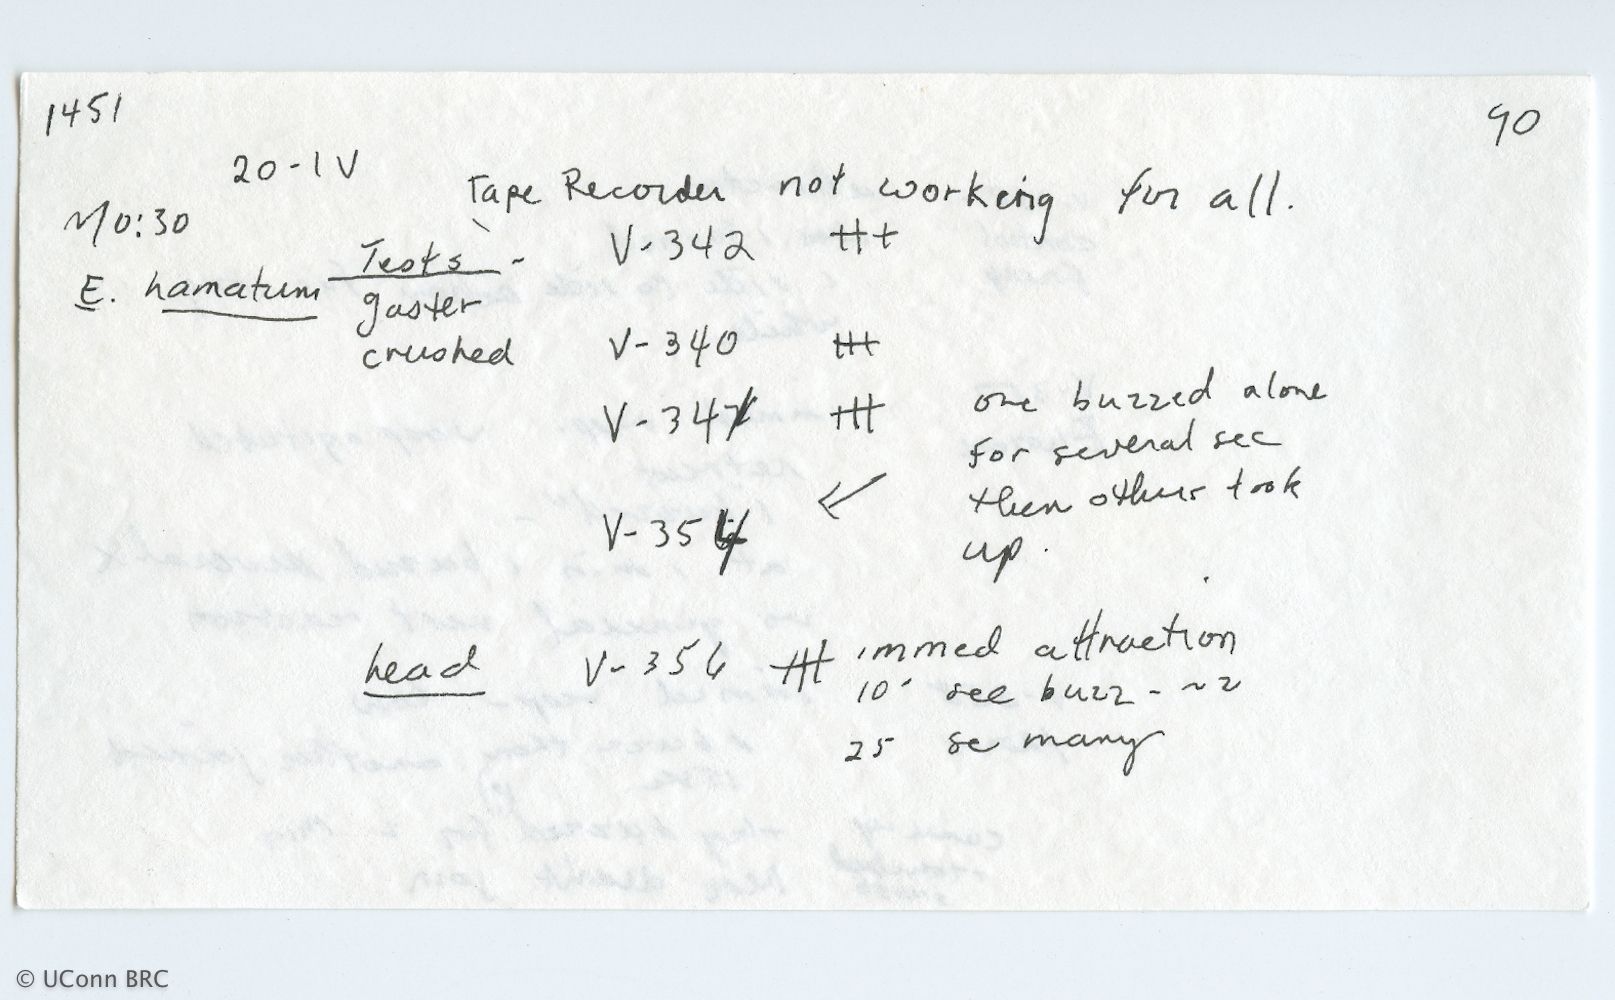 1451
90
20-IV
Tape Recorder not working for all.
~10:30
Tests - V-342 +++
E. hamatum
gaster
crushed V-340 +++
V-347 +++ one buzzed alone
for several sec
then others took
V-354
up.
head V-356 +++ immed attraction
10' see buzz - ~2
25 se many
© UConn BRC